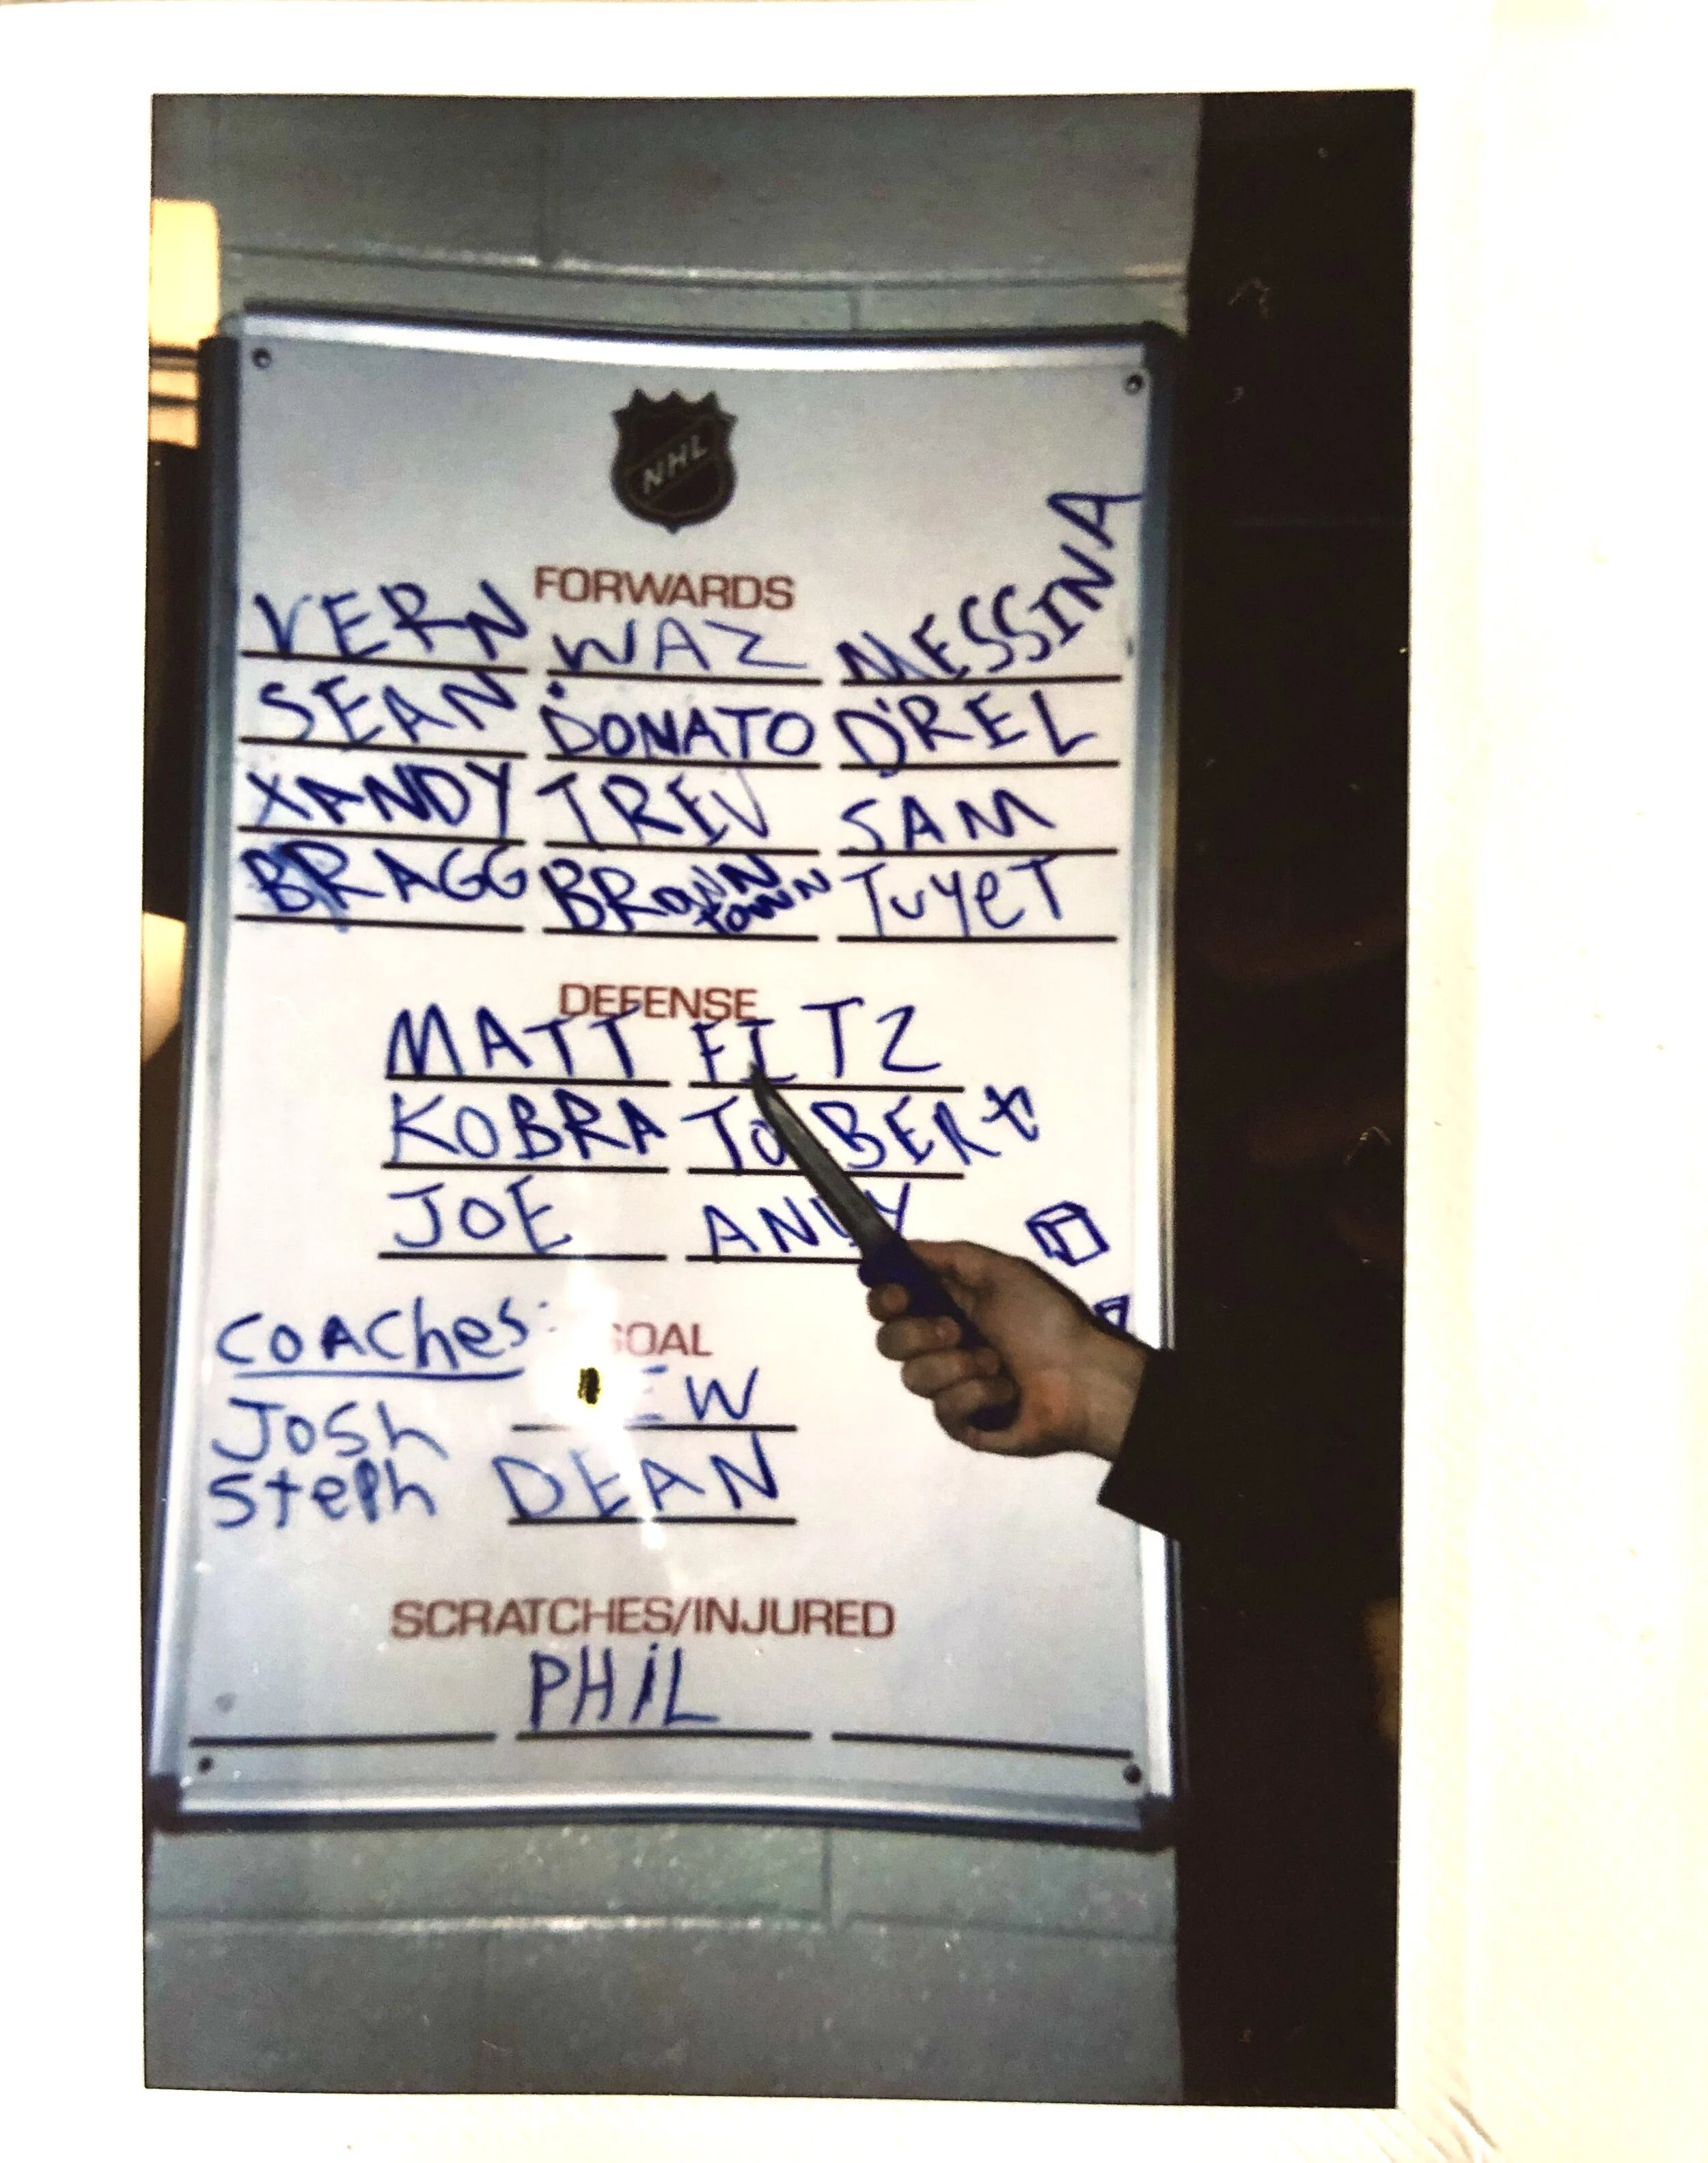 NHL
FORWARDS
VERN WAZ MESSINA
SEAN DONATO D'REL
XANDY TREV SAM
BRAGG BROWN TOWN TuyeT
DEFENSE
MATT FITZ
KOBRA
JOE ANDY
Coaches: GOAL
Josh
Steph DEAN
SCRATCHES/INJURED
PHiL